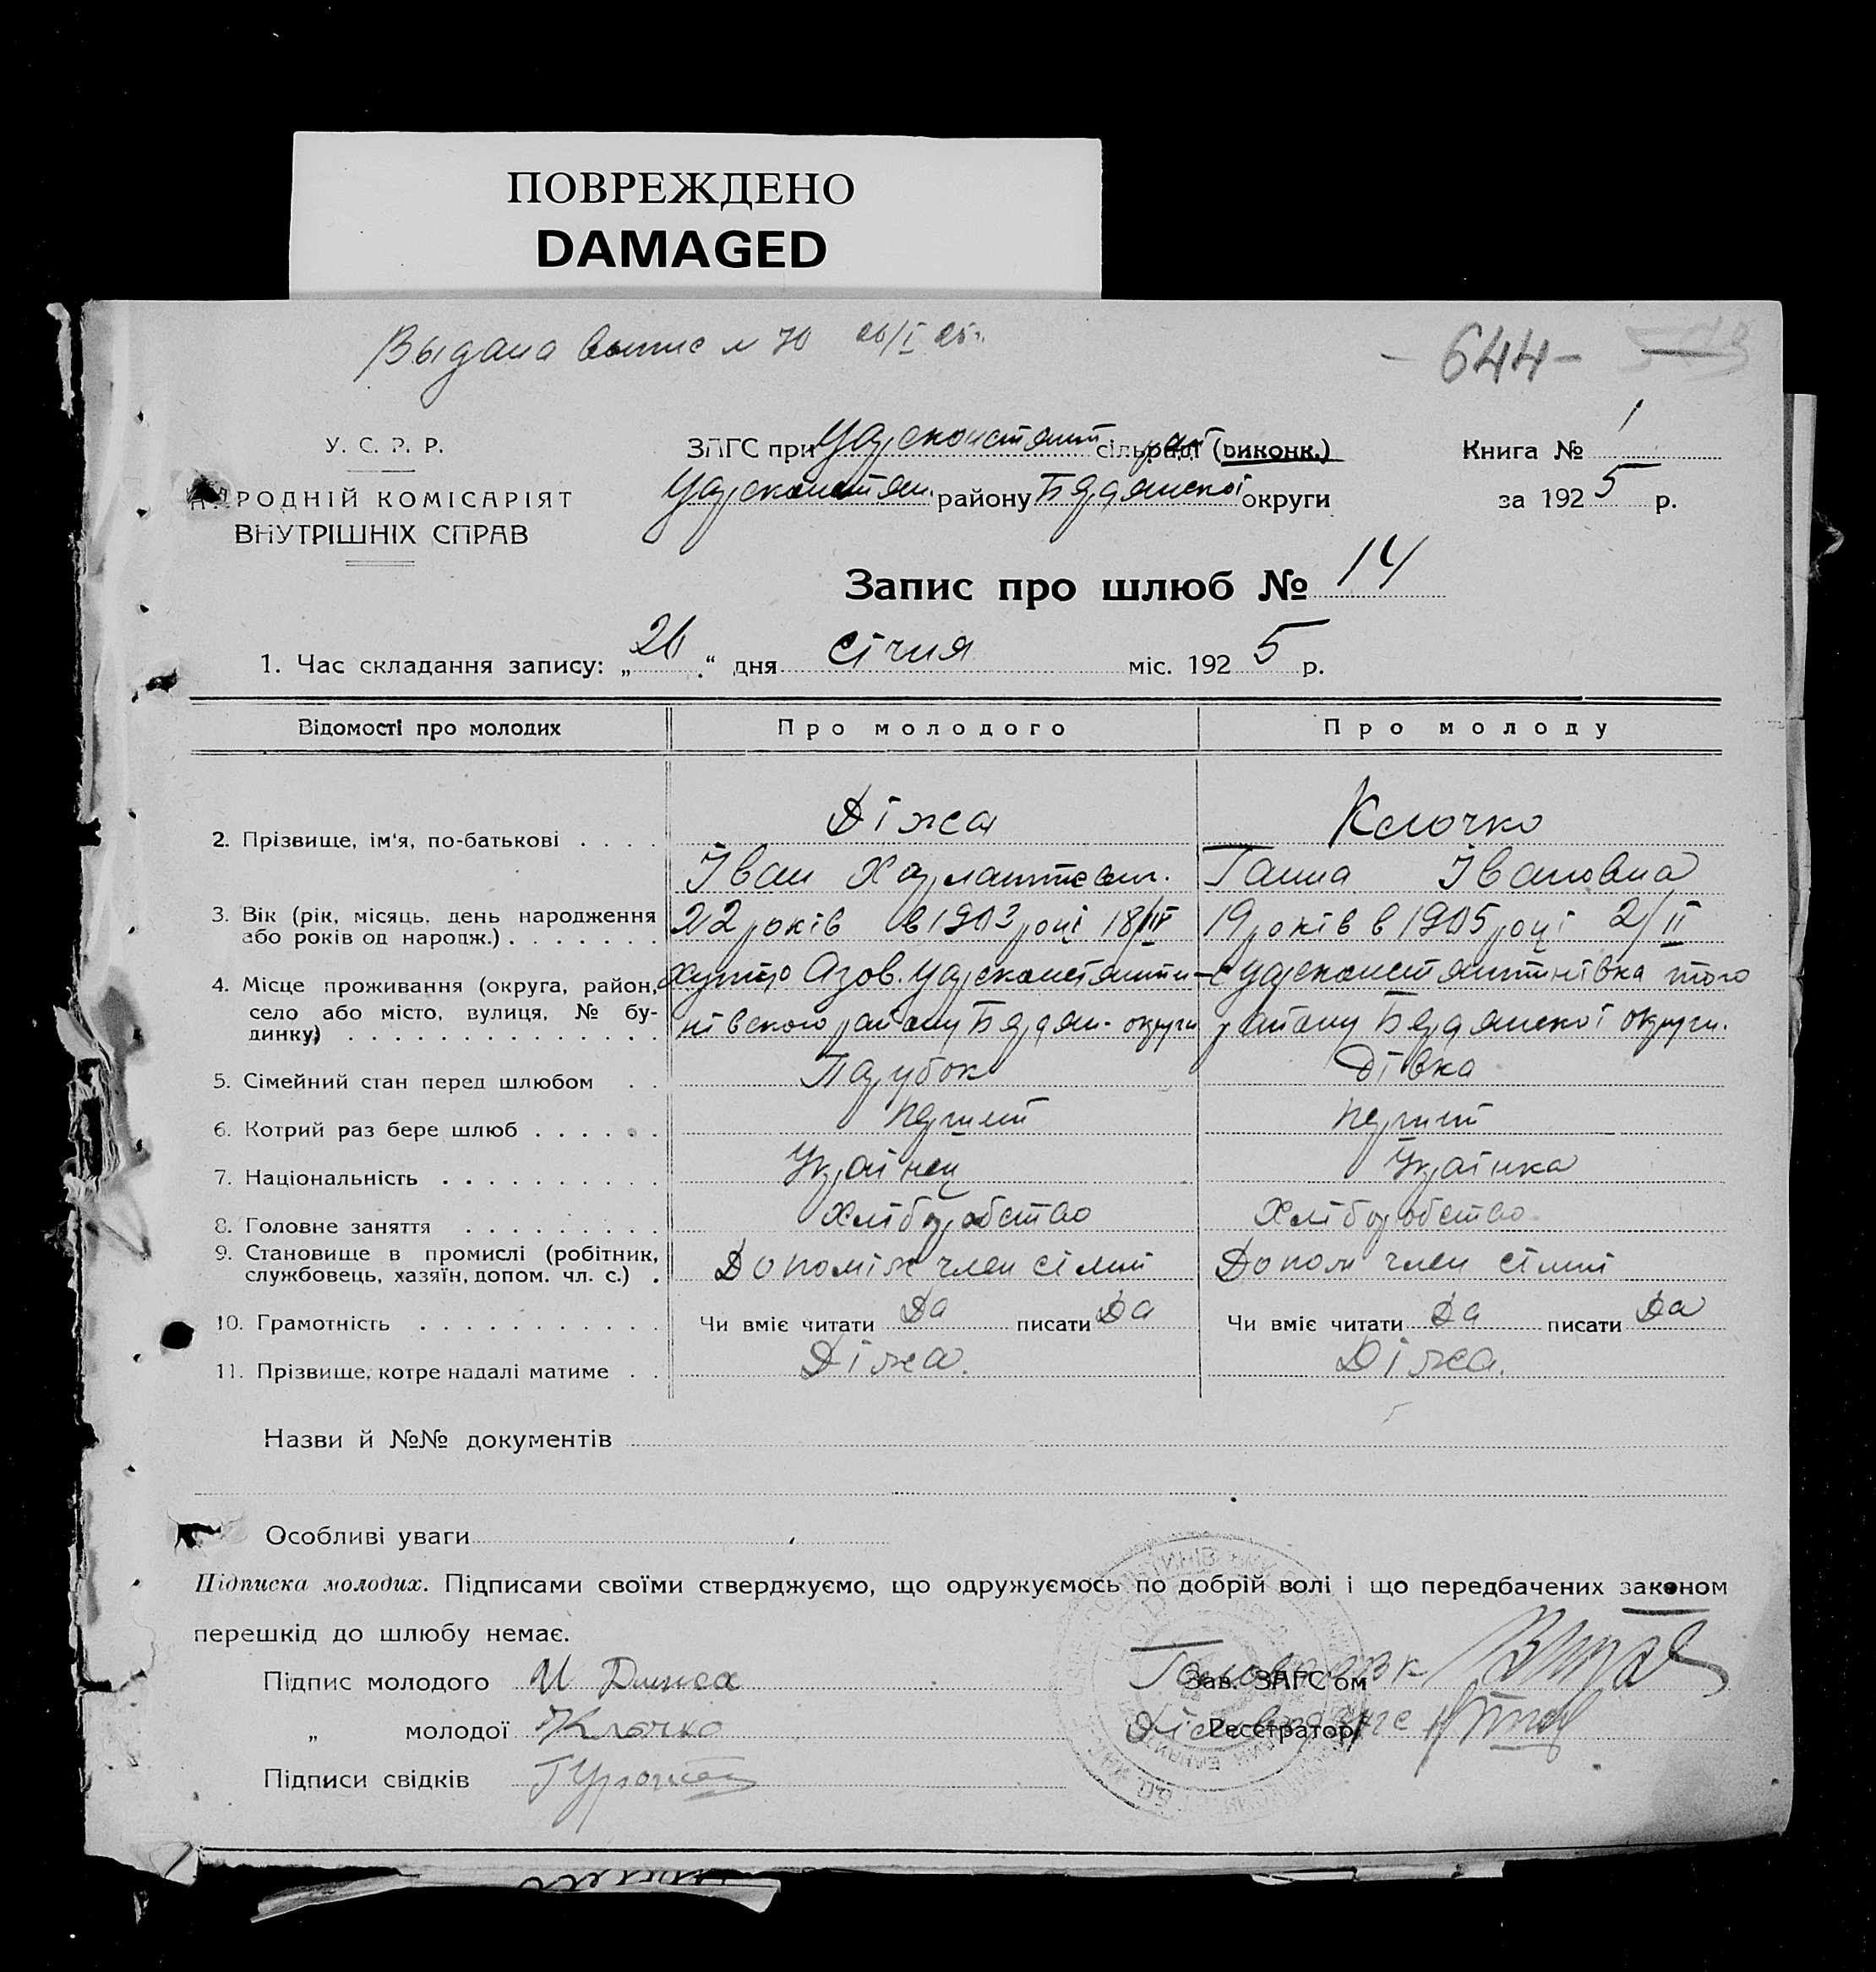 ПОВРЕЖДЕНО
DAMAGED
Выдана выпис № 70 26/I 25г.
- 644 -
У. С. Р. Р.
НАРОДНІЙ КОМІСАРІЯТ
ВНУТРІШНІХ СПРАВ
ЗАГС при Царсконстянт сільраді (виконк.)
Царсконстян. району Бердянської округи
Книга № 1
за 1925 р.
Запис про шлюб № 14
1. Час складання запису: „26“ дня січня міс. 1925 р.
Відомості про молодих Про молодого Про молоду
2. Прізвище, ім'я, по-батькові . . . . Діжа Клочко
Іван Харлампієвич. Ганна Івановна
3. Вік (рік, місяць, день народження або років од народж.) . . . . . . . 22 років в 1903 році 18/III 19 років в 1905 році 2/II
4. Місце проживання (округа, район, село або місто, вулиця, № будинку) . . . . . . . . . . . . . . хутір Азов. Царсконстянтинівского району Бердян. округи с Царсконстянтинівка того району Бердянської округи.
5. Сімейний стан перед шлюбом . . Парубок Дівка
6. Котрий раз бере шлюб . . . . . . перший перший
7. Національність . . . . . . . . . . Українец Українка
8. Головне заняття . . . . . . . . . Хліборобство Хліборобство
9. Становище в промислі (робітник, службовець, хазяїн, допом. чл. с.) . Допоміж член сімії Допом член сімії
10. Грамотність . . . . . . . . . . . Чи вміє читати Да писати Да Чи вміє читати Да писати Да
11. Прізвище, котре надалі матиме . . Діжа. Діжа.
Назви й №№ документів
Особливі уваги
Підписка молодих. Підписами своїми стверджуємо, що одружуємось по добрій волі і що передбачених законом
перешкід до шлюбу немає.
Підпис молодого И Дижа
Зав. ЗАГС'ом
„ молодої Клочко
Реєстратор
Підписи свідків